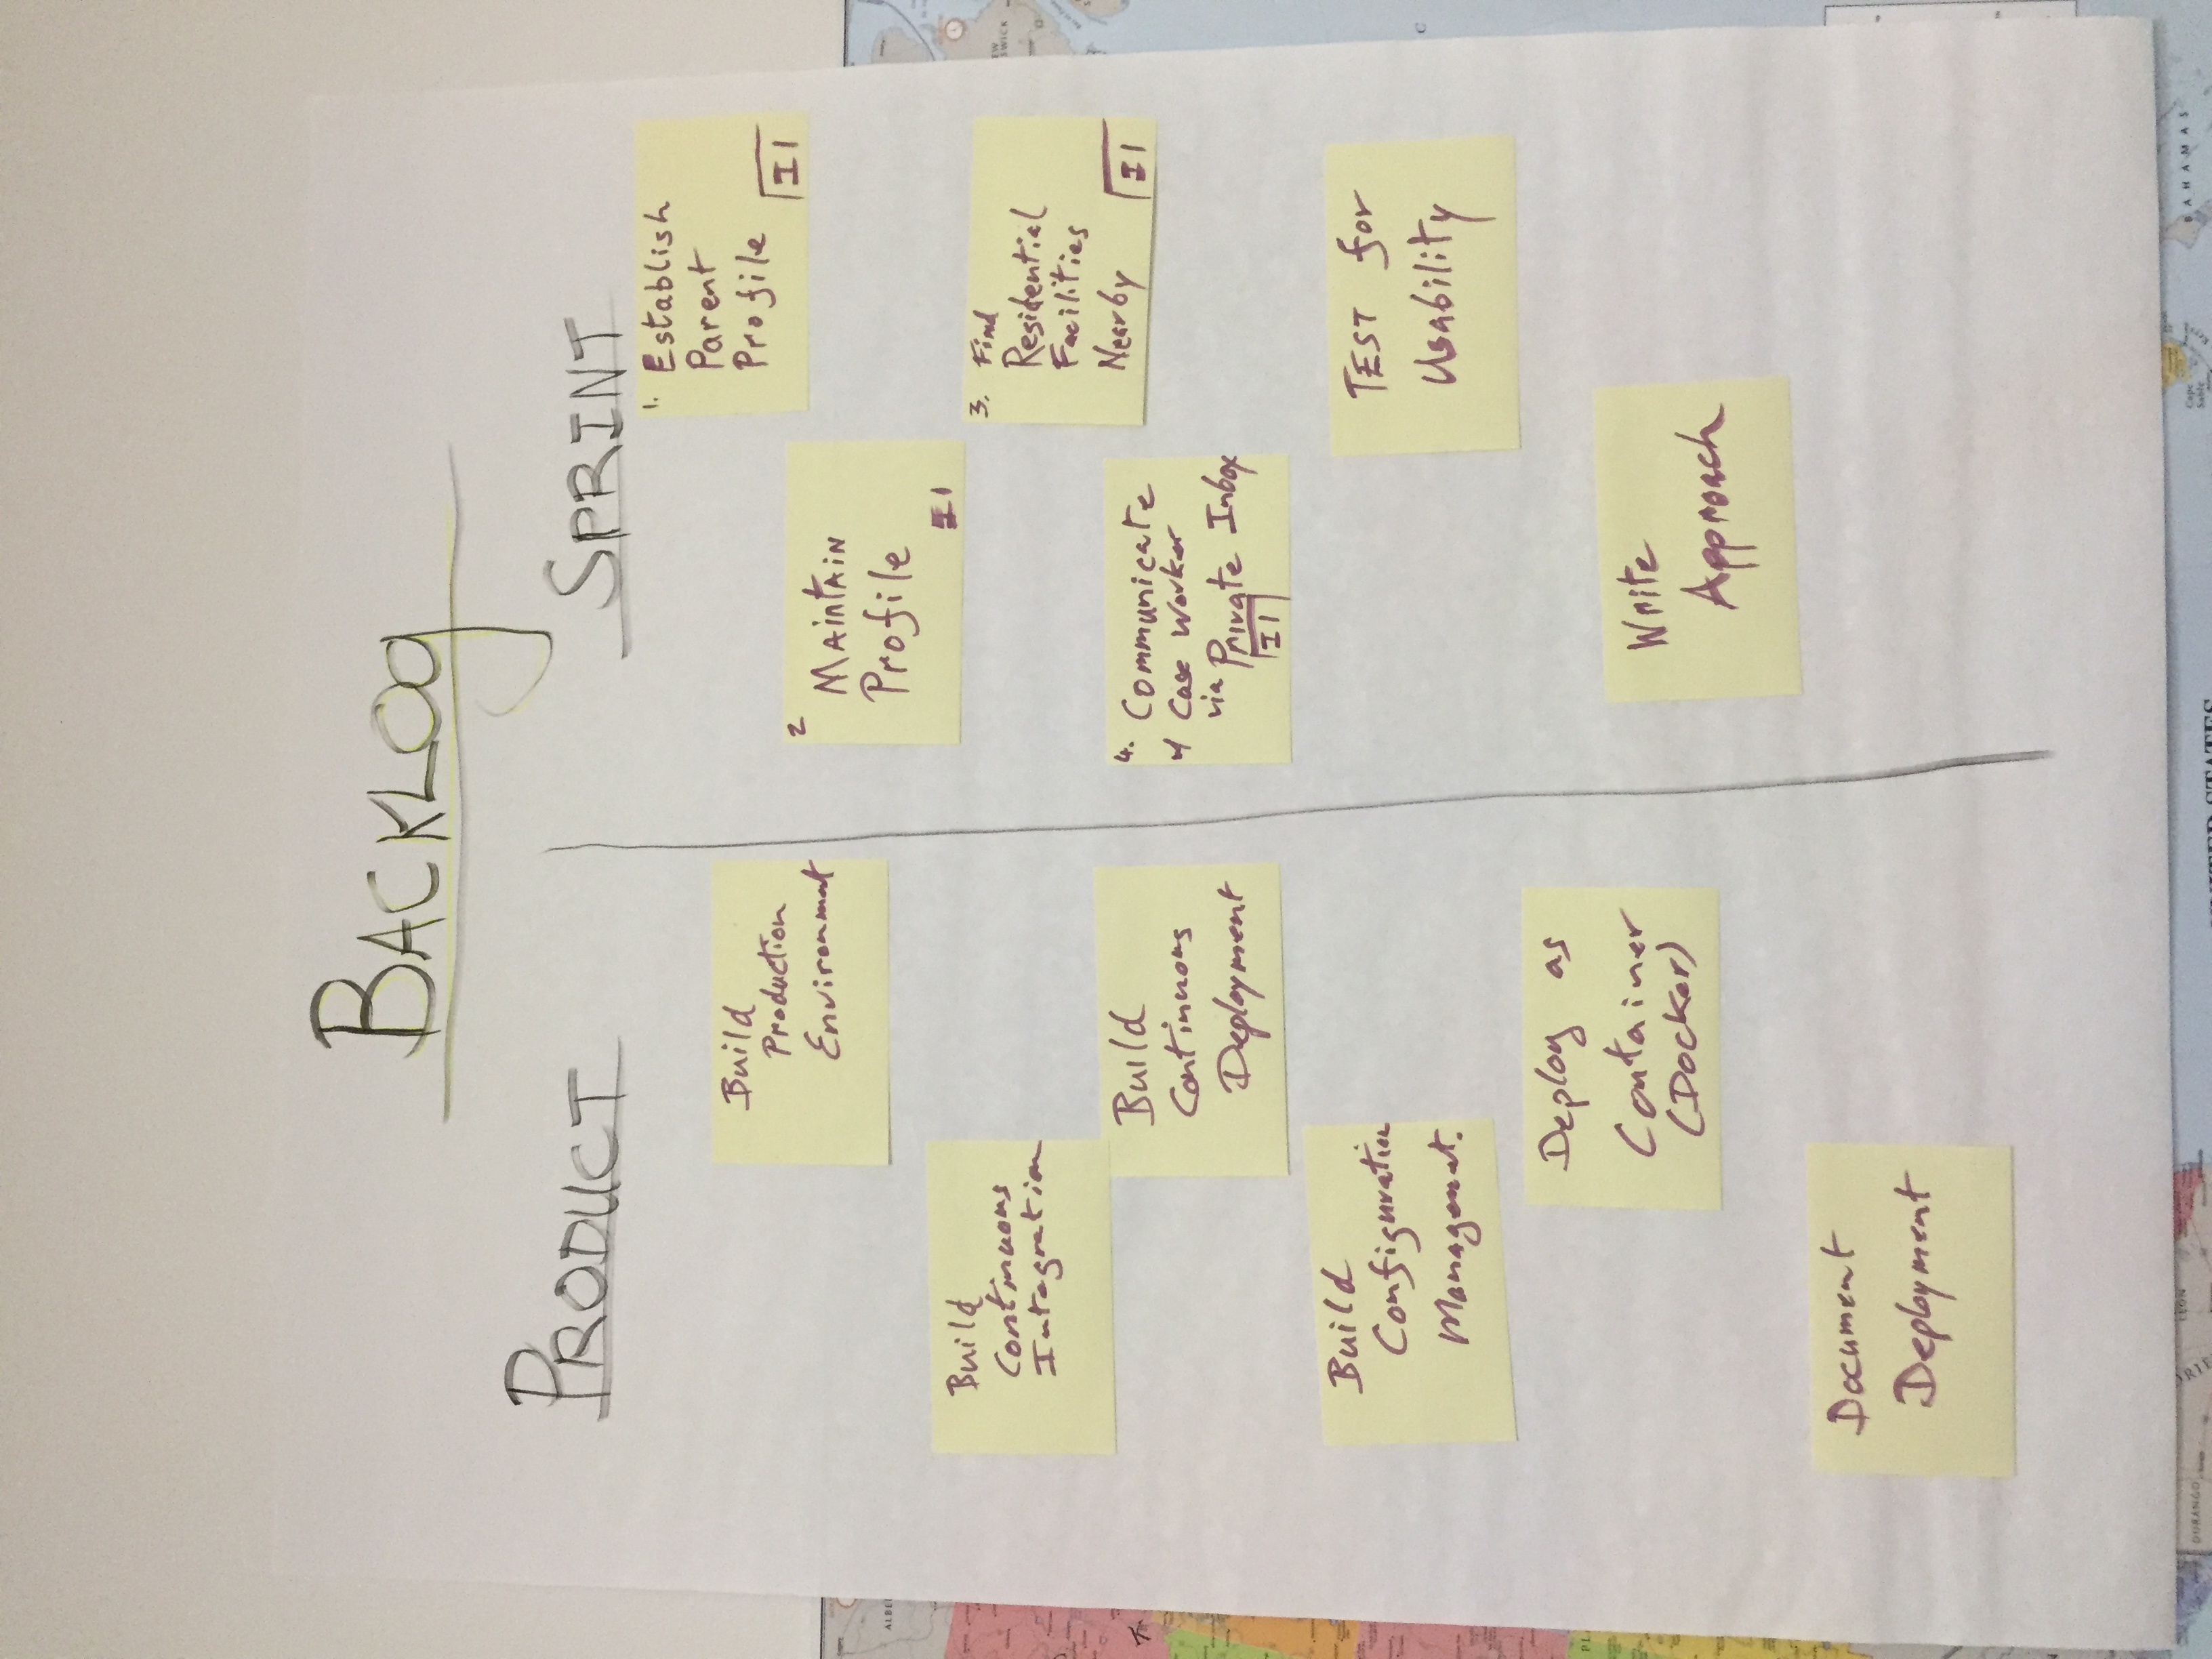 BACKLOg
PRODUCT
Build
Production
Environmat
Build
Continuous
Integration
Build
Continuous
Deployment
Build
Configuration
Managemat.
Deploy as
Container
(Docker)
Document
Deployment
SPRINT
1. Establish
Parent
Profile
I1
2
MAintAiN
Profile
I1
3. Find
Residential
Facilities
Nearby
I1
4. Communicate
w/ Case Worker
via Private Inbox
I1
TEST for
Usability
Write
Approach
ALBE
PL
DURANGO
LEÓN
UNITED STATES
Cape
Sable
BAHAMAS
EW
SWICK
C